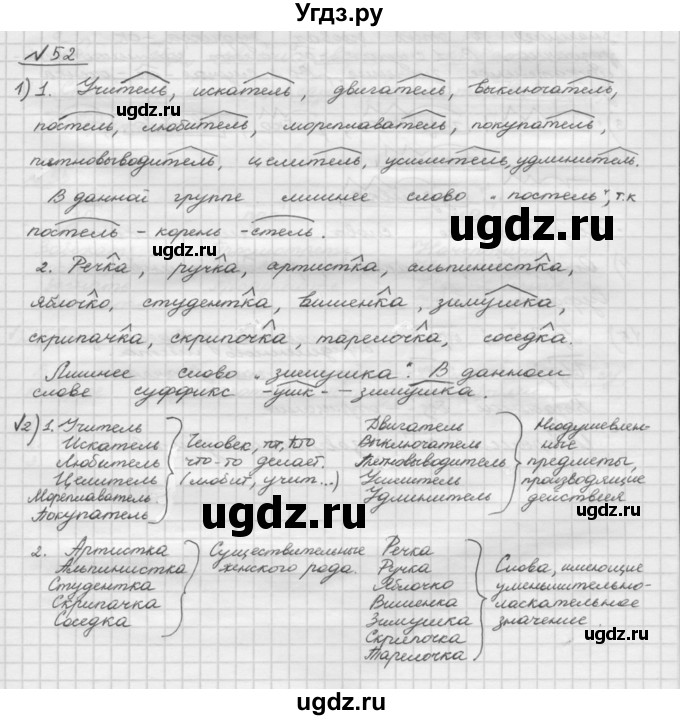 Угдз.ру
№52
1) 1. Учитель, искатель, двигатель, выключатель,
постель, любитель, мореплаватель, покупатель,
пятновыводитель, целитель, усилитель, удлинитель.
В данной группе лишнее слово "постель", т.к
постель - корень -стель.
2. Речка, ручка, артистка, альпинистка,
яблочко, студентка, вишенка, зимушка,
скрипачка, скрипочка, тарелочка, соседка.
Лишнее слово "зимушка". В данном
слове суффикс -ушк- - зимушка.
√2) 1. Учитель
Искатель
Любитель
Целитель
Мореплаватель
Покупатель
Человек, кто
что-то делает.
(любит, учит...)
Двигатель
Выключатель
Пятновыводитель
Усилитель
Удлинитель
Неодушевлен-
ные
предметы,
производящие
действия
2. Артистка
Альпинистка
Студентка
Скрипачка
Соседка
Существительные
женского рода.
Речка
Ручка
Яблочко
Вишенка
Зимушка
Скрипочка
Тарелочка
Слова, имеющие
уменьшительно-
ласкательное
значение
ugdz.ru
ugdz.ru
ugdz.ru
ugdz.ru
ugdz.ru
ugdz.ru
ugdz.ru
ugdz.ru